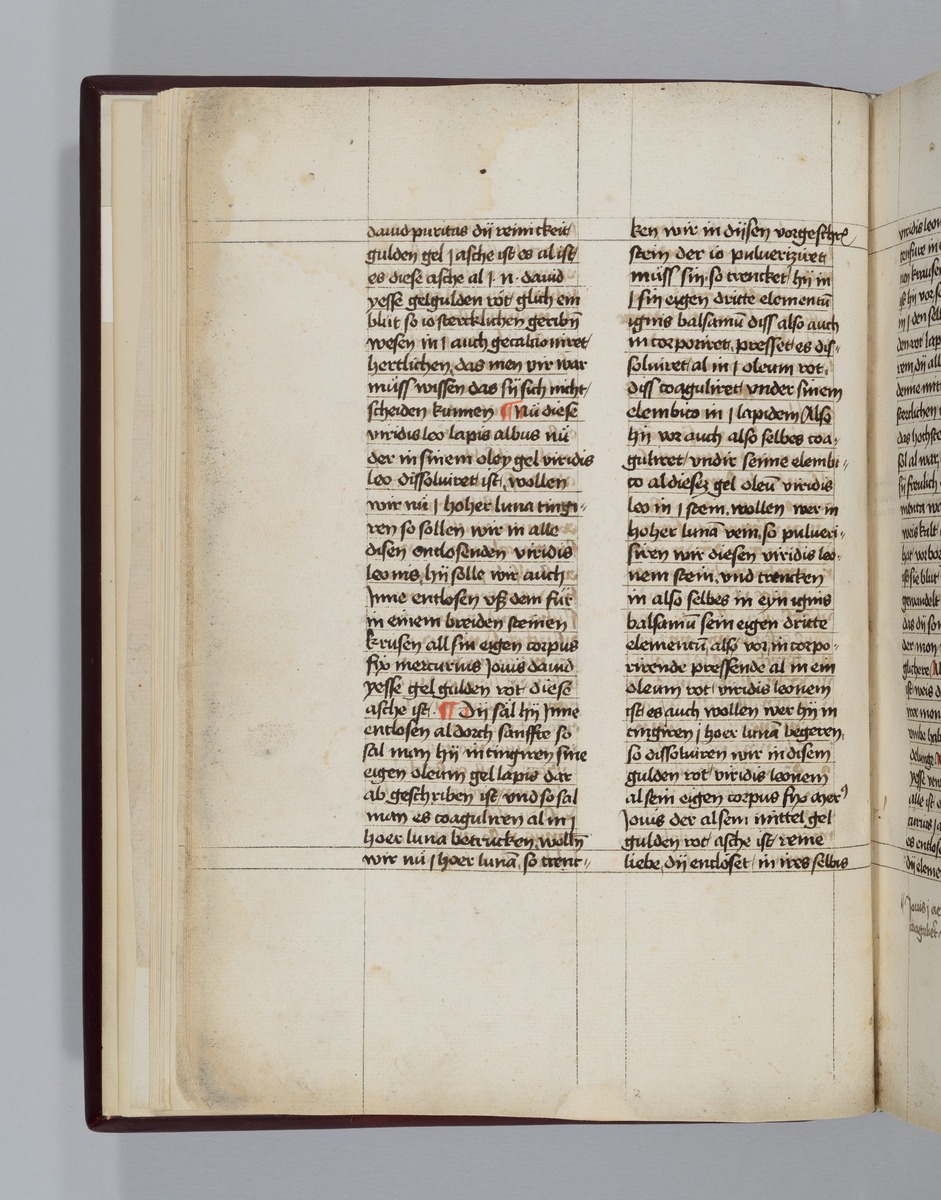 david puritas dij reinickeit
gulden gel j asche ist es al ist
es diese asche al j · n · david
yesse gelgulden rot glich ein
blut so io stercklichen geribn̄
wesen in j auch gecalcioniret
hertlichen, das men vir war
müss wissen das sij sich nicht
scheiden kunnen ¶ Nü diese
viridis leo lapis albus nü
der in sinem oley gel viridis
leo dissoluiret ist, wollen
wir nü j hoher luna tingi⸗
ren so sollen wir in alle
disen entlosenden viridis
leonis, hij solle wir auch
Jnne entlosen vß dem für
in einem breiden steinen
krusen all sin eigen corpus
fix mercurius Jouis david
yesse gel gulden rot diese
asche ist · ¶ Dij sal hij Jnne
entlosen al dorch sanffte so
sal man hij in tingiren sine
eigen oleum gel lapis dar
ab geschriben ist vnd so sal
man es coaguliren al in j
hoer luna betrucken, wolln̄
wir nü j hoer lunā, so trenc⸗
ken wir in dijsen vorgeschr
stein der io pulueriziret
müss sin · so trencket hij in
j sin eigen dritte elementū
ignis balsamū diss also auch
incorporiret, presset es dis⸗
soluiret al in j oleum rot,
diss coaguliret vnder sinem
elembico in j lapidem Also
hij vor auch also selbes coa⸗
guliret vndir seinne elembi⸗
co al dieser gel oleū viridis
leo in j stein, wollen wer in
hoher lunā vein, so pulueri⸗
siren wir diesen viridis leo⸗
nem stein, vnd trencken
in also selbes in eyn ignis
balsamū sein eigen dritte
elementū, also vor, in corpo⸗
rirende pressende al in ein
oleum rot viridis leonem
ist es auch wollen wer hij in
tingiren j hoer lunā begeren,
so dissoluiren wir in disem
gulden rot viridis leonem
al sein eigen corpus fix mer
Jouis der al sem mittel gel
gulden rot asche ist reine
liebe, dij entloset in ires selbis